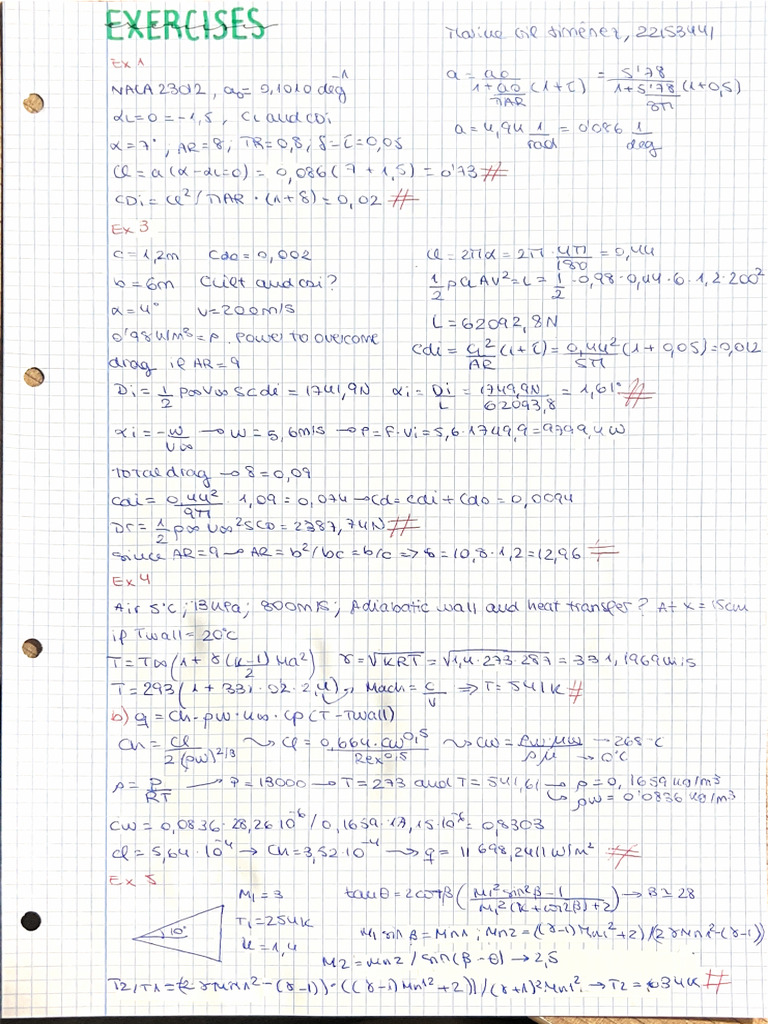 EXERCISES
22153441
Ex 1
NACA 23012, a₀ = 0,1010 deg⁻¹
αL=0 = -1,5, CL and CDi
α = 7°, AR = 8; TR = 0,8; δ-τ = 0,05
a = a₀ / (1 + a₀/πAR (1+τ)) = 5'78 / (1 + 5'78/8π (1+0,5))
a = 4,94 1/rad = 0'086 1/deg
Cl = a(α - αL=0) = 0,086(7 + 1,5) = 0'73 #
CDi = Cl²/πAR · (1+δ) = 0,02 #
Ex 3
c = 1,2m Cdo = 0,002
b = 6m Clift and cdi?
α = 4° v = 200m/s
0'98 = ρ. Power to overcome
drag if AR = 9
Cl = 2πα = 2π · 4π/180 = 0,44
1/2 ρ Cl A V² = L = 1/2 · 0,98 · 0,44 · 6 · 1,2 · 200²
L = 62092,8N
Cdi = Cl²/AR (1+τ) = 0,44²/5π (1 + 0,05) = 0,012
Di = 1/2 ρ∞ V∞ S Cdi = 1741,9N αi = Di/L = 1749,9N/62093,8 = 1,61° #
αi = -w/V∞ → w = 5,6m/s → P = F·Vi = 5,6·1749,9 = 9799,4W
Total drag → δ = 0,09
Cdi = 0,44²/9π · 1,09 = 0,074 → Cd = Cdi + Cdo = 0,0094
DT = 1/2 ρ∞ V∞² S CD = 2387,74N #
Since AR = 9 → AR = b²/bc = b/c => S = 10,8·1,2 = 12,96 #
Ex 4
Air 5°C; 13kPa; 800m/s; Adiabatic wall and heat transfer? At x = 15cm
if Twall = 20°C
T = T∞(1 + r (k-1)/2 Ma²) r = √KRT = √1,4·273·287 = 331,1969m/s
Mach = c/v => T = 541K #
b) q = Ch · ρw · u∞ · cp (T - Twall)
Ch = Cl / 2(ρw)^2/3 ⤳ Cl = 0,664 · Cw^0,5 / Rex^0,5 ⤳ Cw = ρw·μw / ρμ → 268°C
→ 0°C
ρ = P/RT → P = 13000 → T = 273 and T = 541,61 → ρ = 0,1659 kg/m³
↳ ρw = 0'0836 kg/m³
Cw = 0,0836 · 28,26·10⁻⁶ / 0,1659 · 17,15·10⁻⁶ = 0,8303
Cl = 5,64·10⁻⁴ → Ch = 3,52·10⁻⁴ → q = 11698,2411 W/m² #
Ex 5
10°
M₁ = 3
T₁ = 254K
k = 1,4
tanθ = 2cotβ (M₁² sin²β - 1 / M₁²(k + cos2β) + 2) → β ≃ 28
M₁ sinβ = Mn₁; Mn2 = ((γ-1)Mn₁² + 2) / (2γMn1² - (γ-1))
M2 = Mn2 / sin(β - θ) → 2,5
T2/T1 = (2γMn1² - (γ-1)) · ((γ-1)Mn1² + 2)) / (γ+1)²Mn1² →